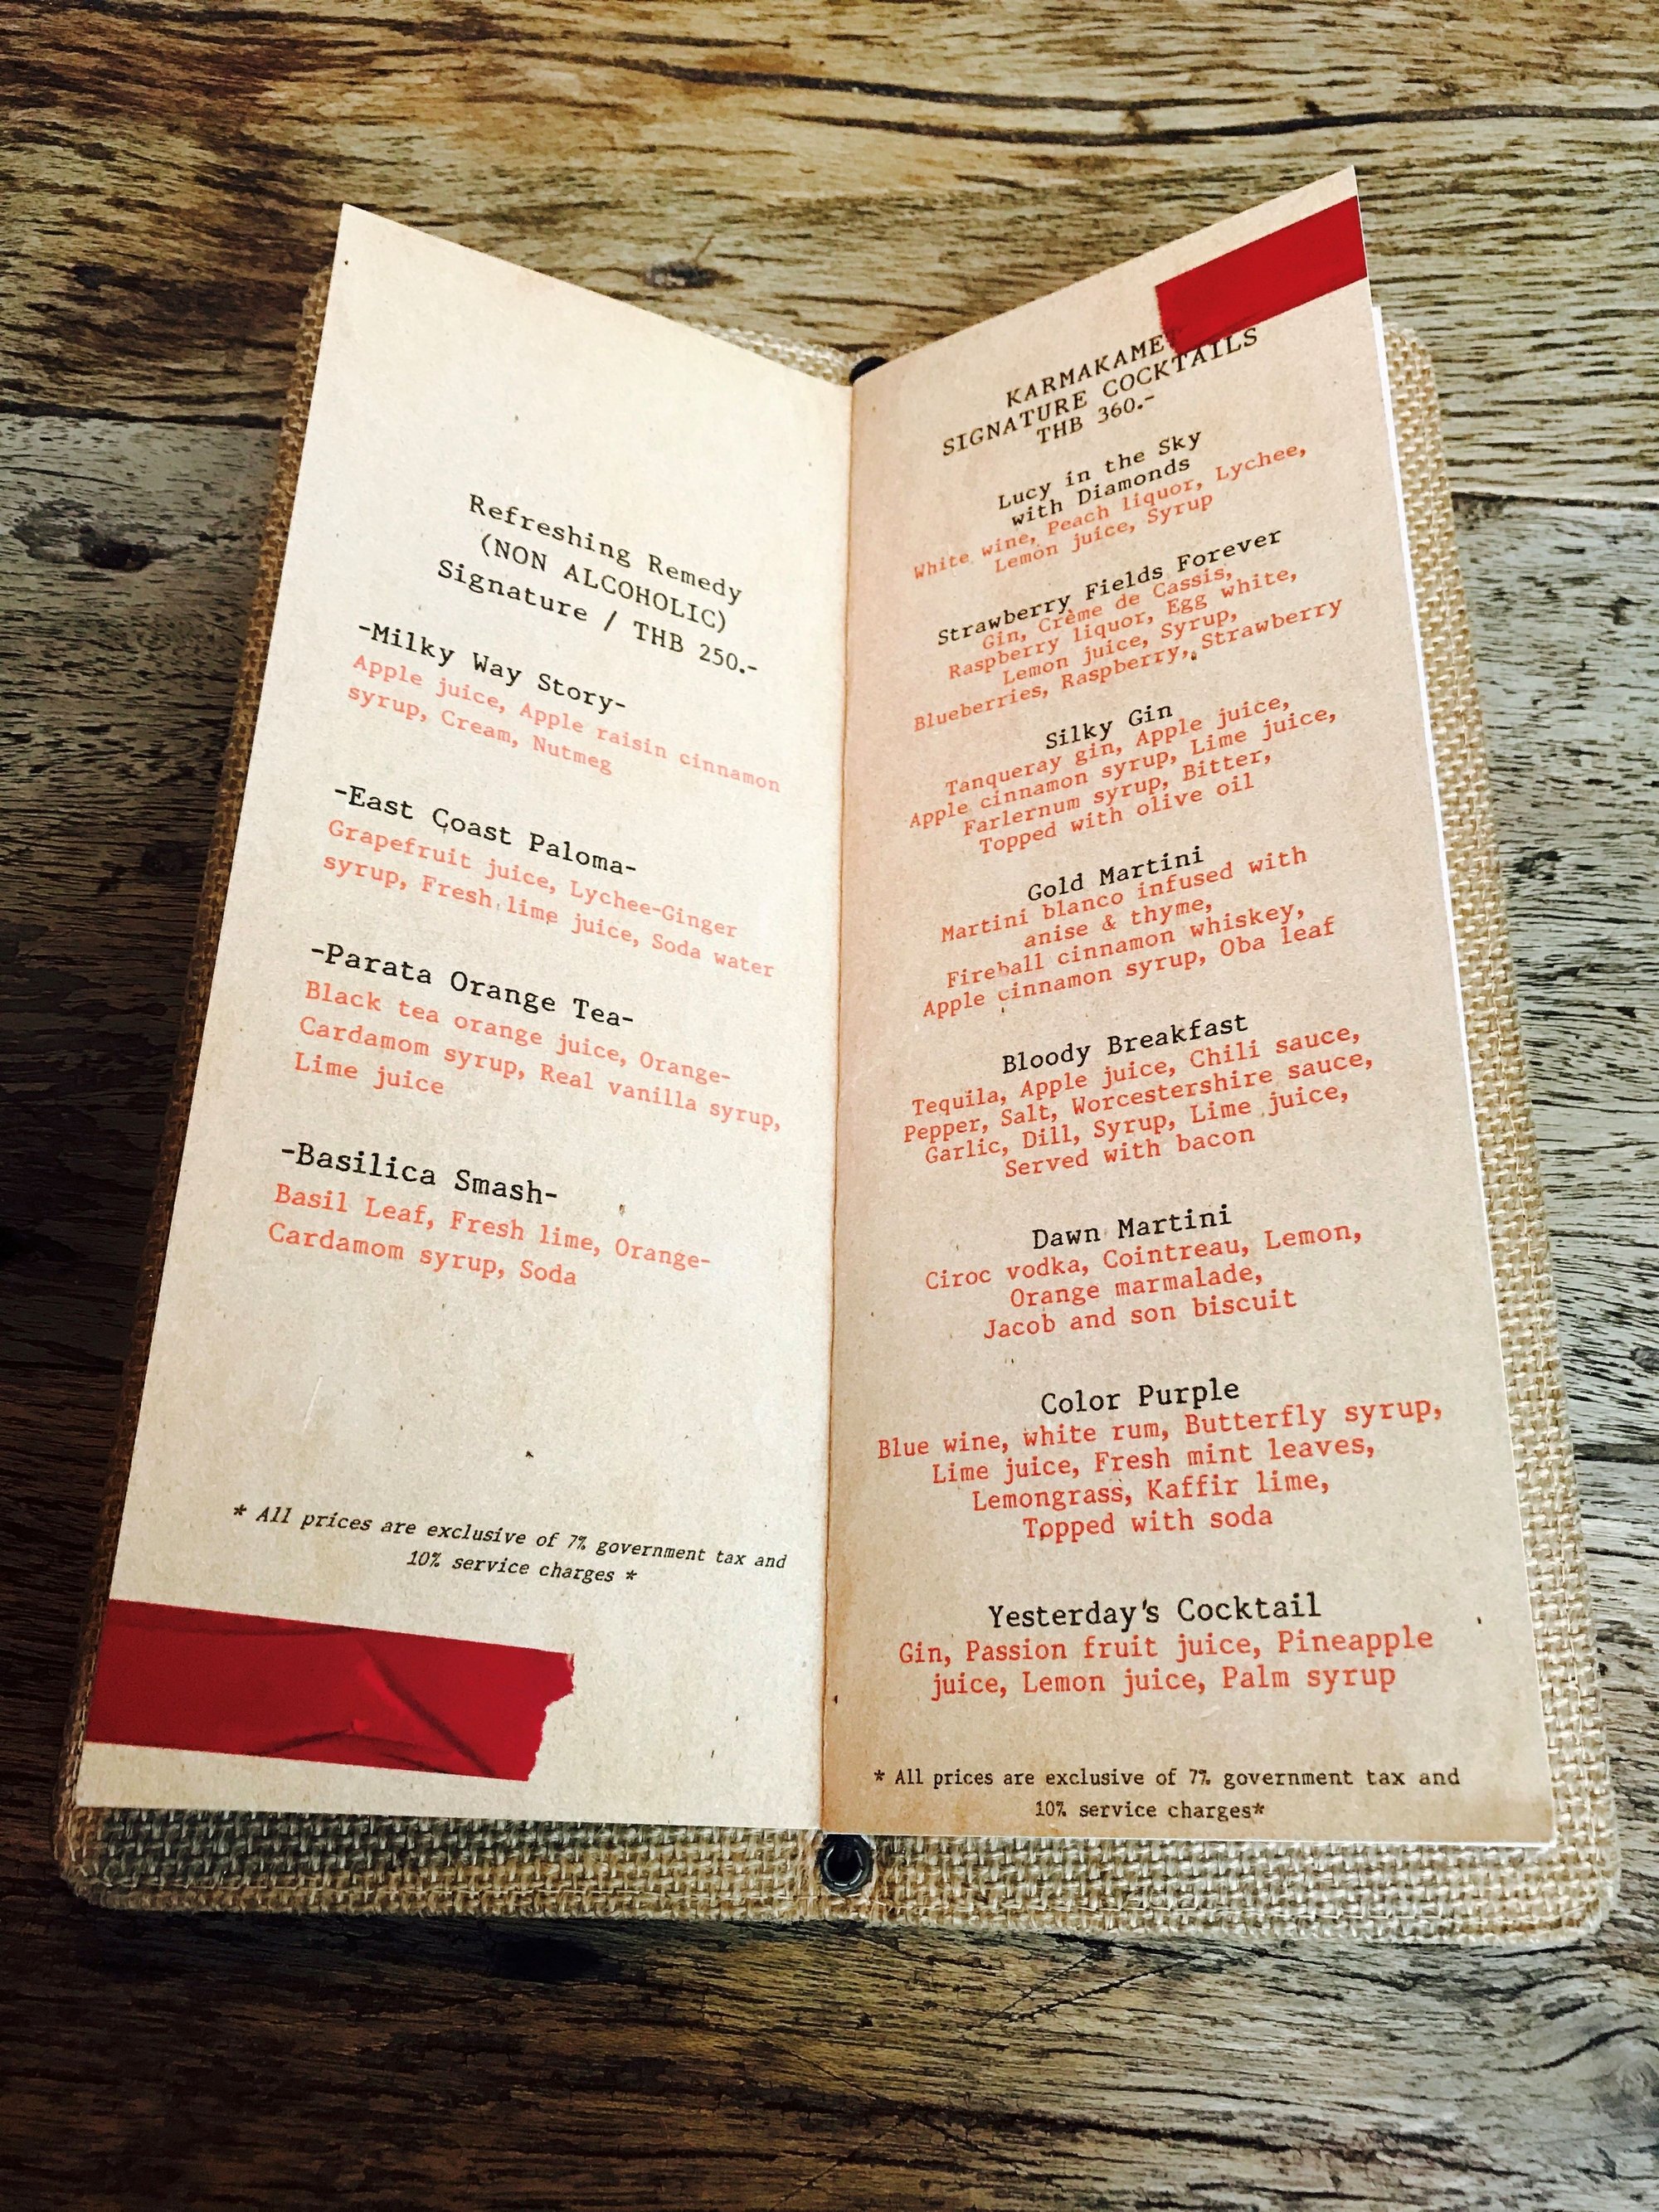 Refreshing Remedy
(NON ALCOHOLIC)
Signature / THB 250.-
-Milky Way Story-
Apple juice, Apple raisin cinnamon
syrup, Cream, Nutmeg
-East Coast Paloma-
Grapefruit juice, Lychee-Ginger
syrup, Fresh lime juice, Soda water
-Parata Orange Tea-
Black tea orange juice, Orange-
Cardamom syrup, Real vanilla syrup,
Lime juice
-Basilica Smash-
Basil Leaf, Fresh lime, Orange-
Cardamom syrup, Soda
* All prices are exclusive of 7% government tax and
10% service charges *
KARMAKAMET
SIGNATURE COCKTAILS
THB 360.-
Lucy in the Sky
with Diamonds
White wine, Peach liquor, Lychee,
Lemon juice, Syrup
Strawberry Fields Forever
Gin, Crème de Cassis,
Raspberry liquor, Egg white,
Lemon juice, Syrup,
Blueberries, Raspberry, Strawberry
Silky Gin
Tanqueray gin, Apple juice,
Apple cinnamon syrup, Lime juice,
Farlernum syrup, Bitter,
Topped with olive oil
Gold Martini
Martini blanco infused with
anise & thyme,
Fireball cinnamon whiskey,
Apple cinnamon syrup, Oba leaf
Bloody Breakfast
Tequila, Apple juice, Chili sauce,
Pepper, Salt, Worcestershire sauce,
Garlic, Dill, Syrup, Lime juice,
Served with bacon
Dawn Martini
Ciroc vodka, Cointreau, Lemon,
Orange marmalade,
Jacob and son biscuit
Color Purple
Blue wine, white rum, Butterfly syrup,
Lime juice, Fresh mint leaves,
Lemongrass, Kaffir lime,
Topped with soda
Yesterday's Cocktail
Gin, Passion fruit juice, Pineapple
juice, Lemon juice, Palm syrup
* All prices are exclusive of 7% government tax and
10% service charges*